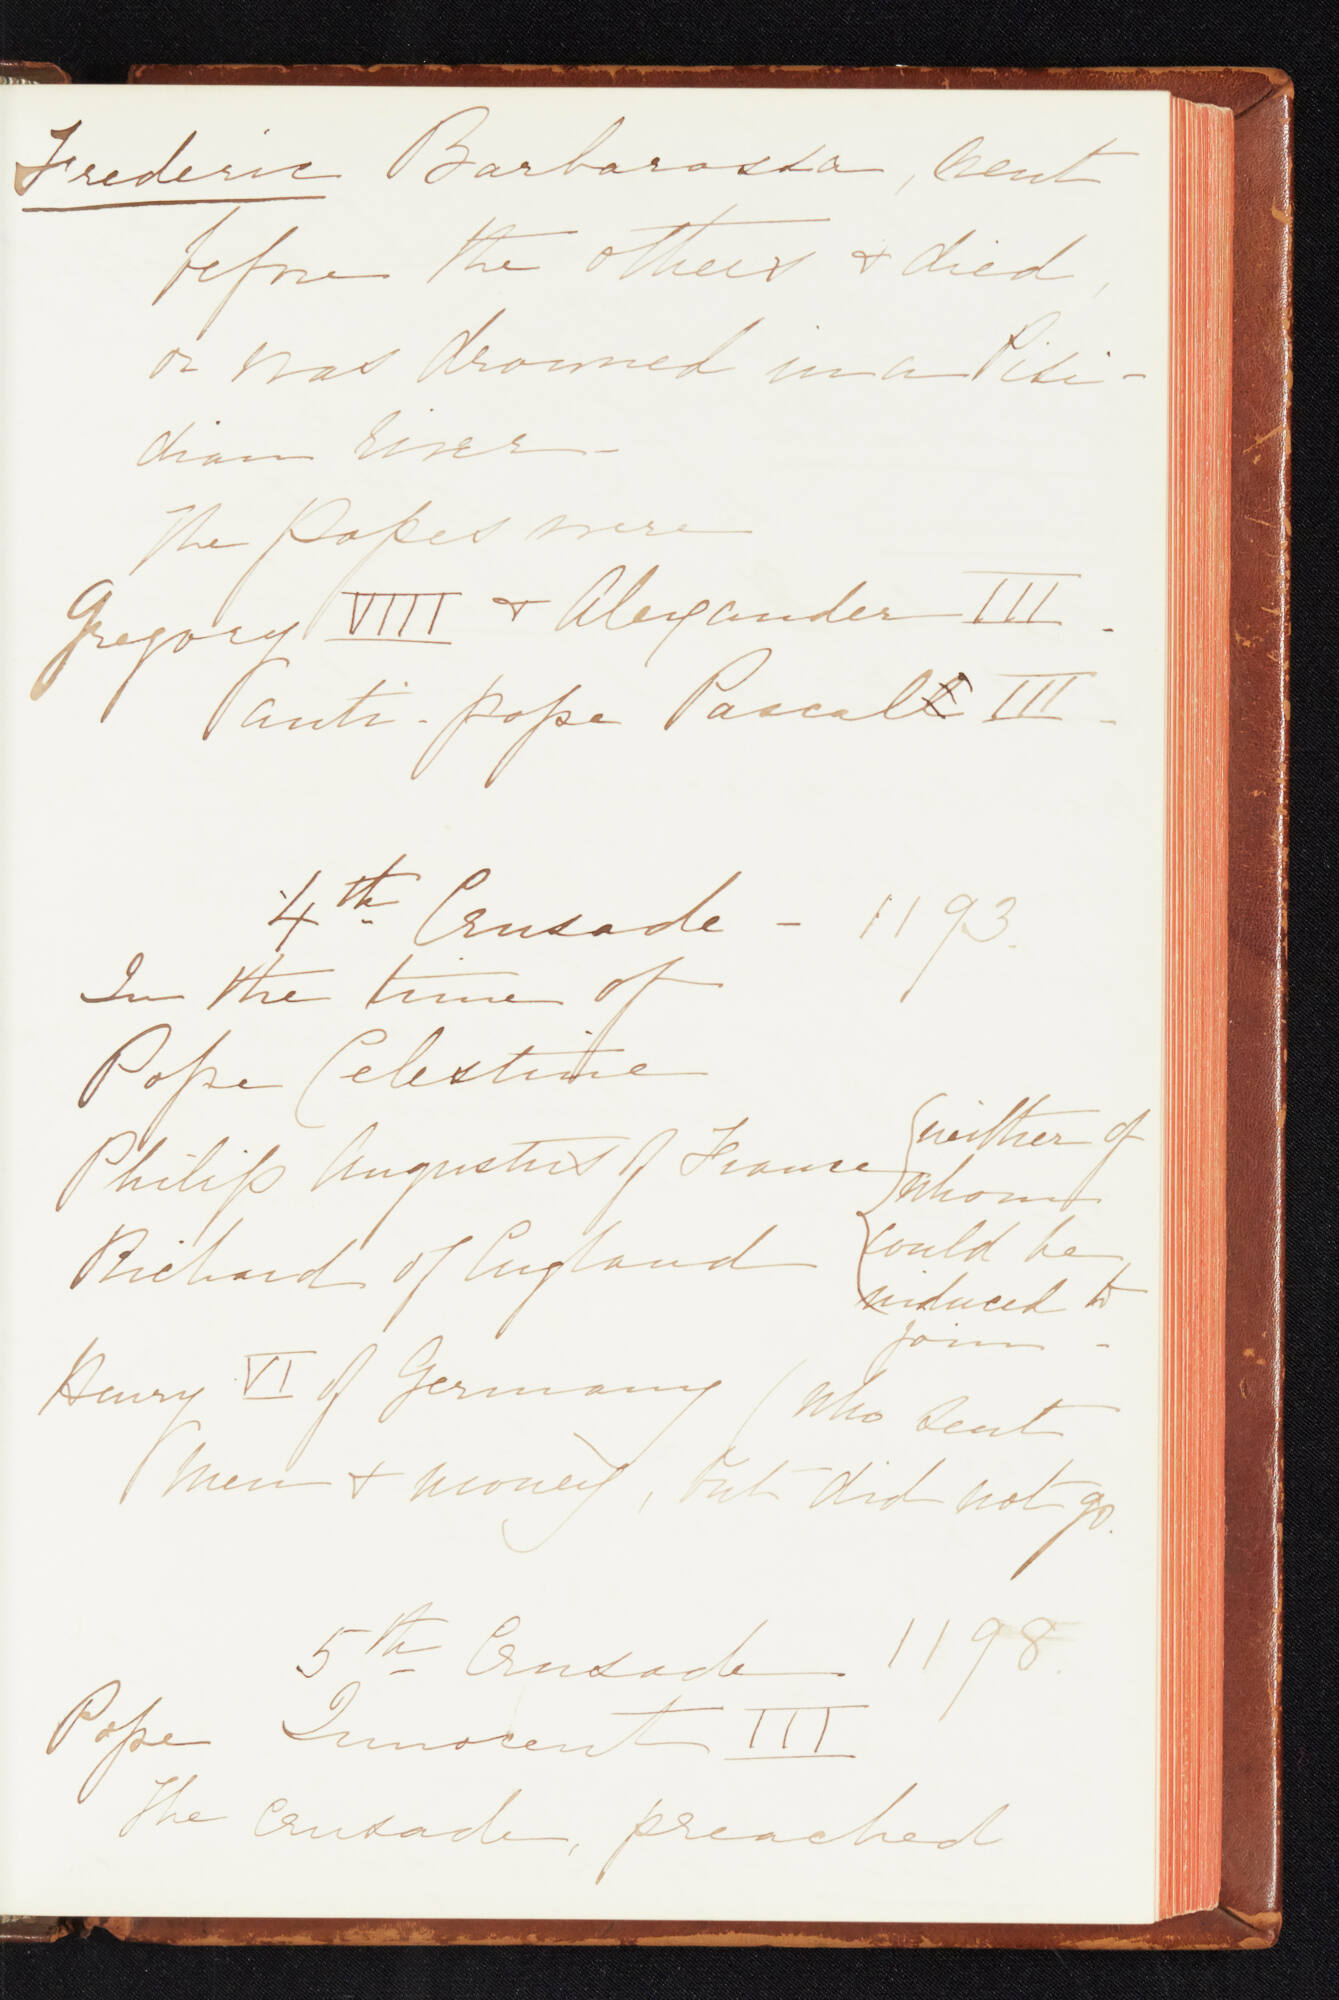 Frederic Barbarossa, went
before the others & died,
or was drowned in a Pisi-
dian river -
The popes were
Gregory VIII & Alexander III -
anti-pope Pascal III -
4th Crusade - 1193.
In the time of
Pope Celestine
Philip Augustus of France { neither of
whom
Richard of England { could be
induced to
join -
Henry VI of Germany (who sent
men & money), but did not go.
5th Crusade 1198.
Pope Innocent III
The crusade, preached